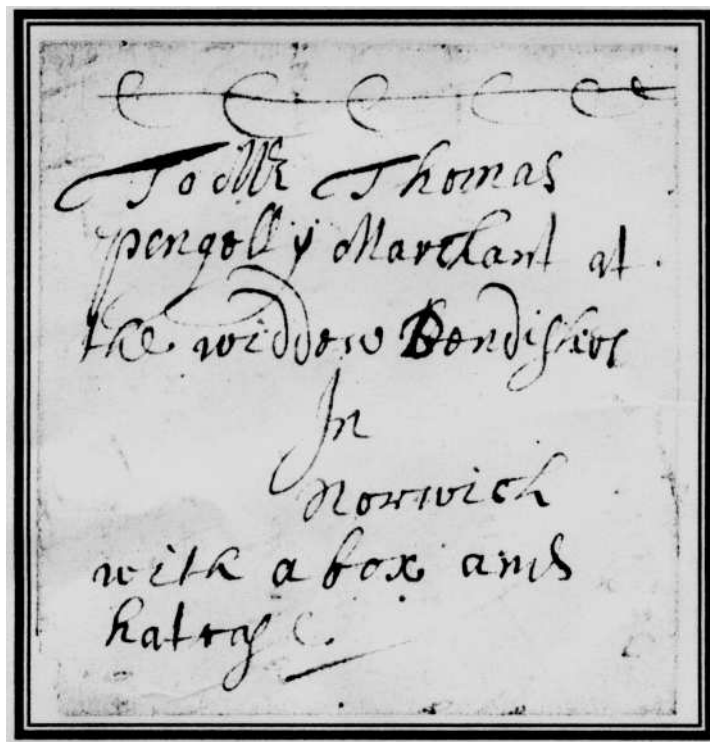 To Mr Thomas
pengelly Marchant at
the widdow Bendishes
In
Norwich
with a box and
hatcase